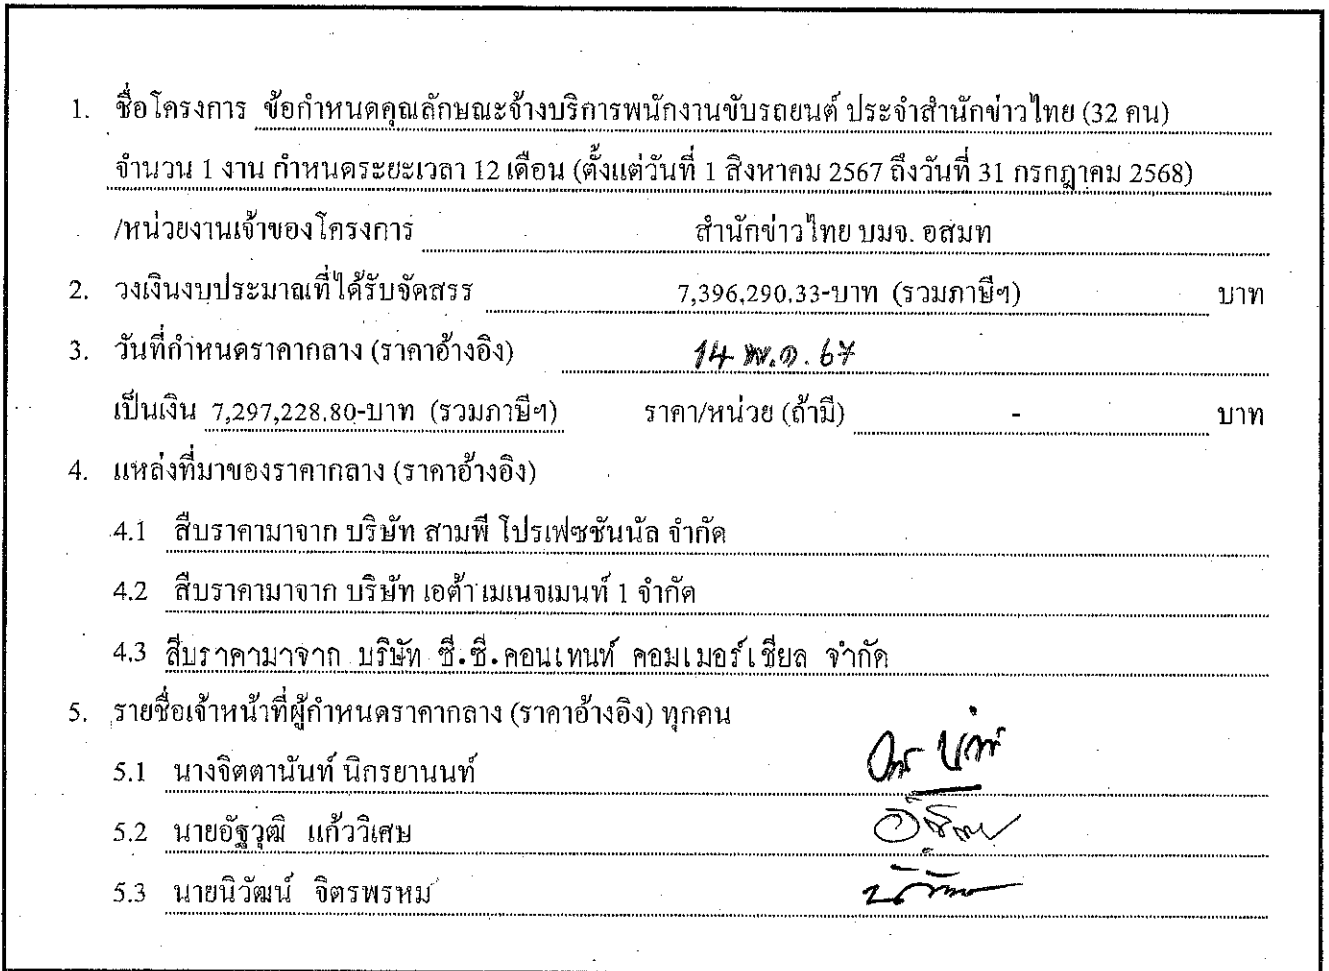 1. ชื่อโครงการ ข้อกำหนดคุณลักษณะจ้างบริการพนักงานขับรถยนต์ ประจำสำนักข่าวไทย (32 คน)
จำนวน 1 งาน กำหนดระยะเวลา 12 เดือน (ตั้งแต่วันที่ 1 สิงหาคม 2567 ถึงวันที่ 31 กรกฎาคม 2568)
/หน่วยงานเจ้าของโครงการ สำนักข่าวไทย บมจ. อสมท
2. วงเงินงบประมาณที่ได้รับจัดสรร 7,396,290.33-บาท (รวมภาษีฯ) บาท
3. วันที่กำหนดราคากลาง (ราคาอ้างอิง) 14 พ.ค. 67
เป็นเงิน 7,297,228.80-บาท (รวมภาษีฯ) ราคา/หน่วย (ถ้ามี) - บาท
4. แหล่งที่มาของราคากลาง (ราคาอ้างอิง)
4.1 สืบราคามาจาก บริษัท สามพี โปรเฟซชันนัล จำกัด
4.2 สืบราคามาจาก บริษัท เอต้า เมเนจเมนท์ 1 จำกัด
4.3 สืบราคามาจาก บริษัท ซี.ซี.คอนเทนท์ คอมเมอร์เชียล จำกัด
5. รายชื่อเจ้าหน้าที่ผู้กำหนดราคากลาง (ราคาอ้างอิง) ทุกคน
5.1 นางจิตตานันท์ นิกรยานนท์
5.2 นายอัฐวุฒิ แก้ววิเศษ
5.3 นายนิวัฒน์ จิตรพรหม